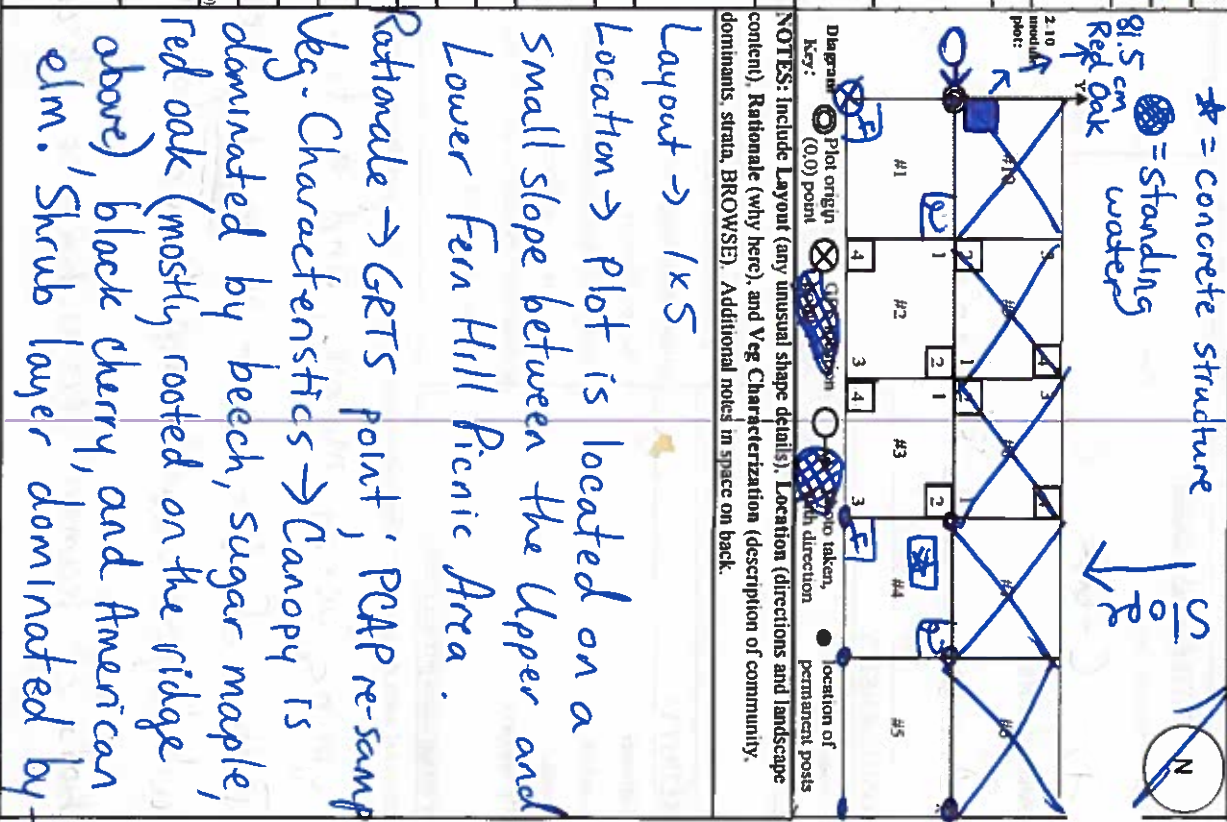 * = concrete structure
= standing water
81.5 cm
Red Oak
Slope
N
2-10
module
plot:
Y
#10
#9
#8
#7
#6
#1
#2
#3
#4
#5
2
1
4
3
2
1
4
3
2
F
F
*
Diagram Key:
Plot origin (0,0) point
photo taken, with direction
location of permanent posts
NOTES: Include Layout (any unusual shape details), Location (directions and landscape
content), Rationale (why here), and Veg Characterization (description of community,
dominants, strata, BROWSE). Additional notes in space on back.
Layout → 1x5
Location → plot is located on a
small slope between the Upper and
Lower Fern Hill Picnic Area.
Rationale → GRTS point; PCAP re-samp
Veg. Characteristics → Canopy is
dominated by beech, sugar maple,
red oak (mostly rooted on the ridge
above) black cherry, and American
elm. Shrub layer dominated by